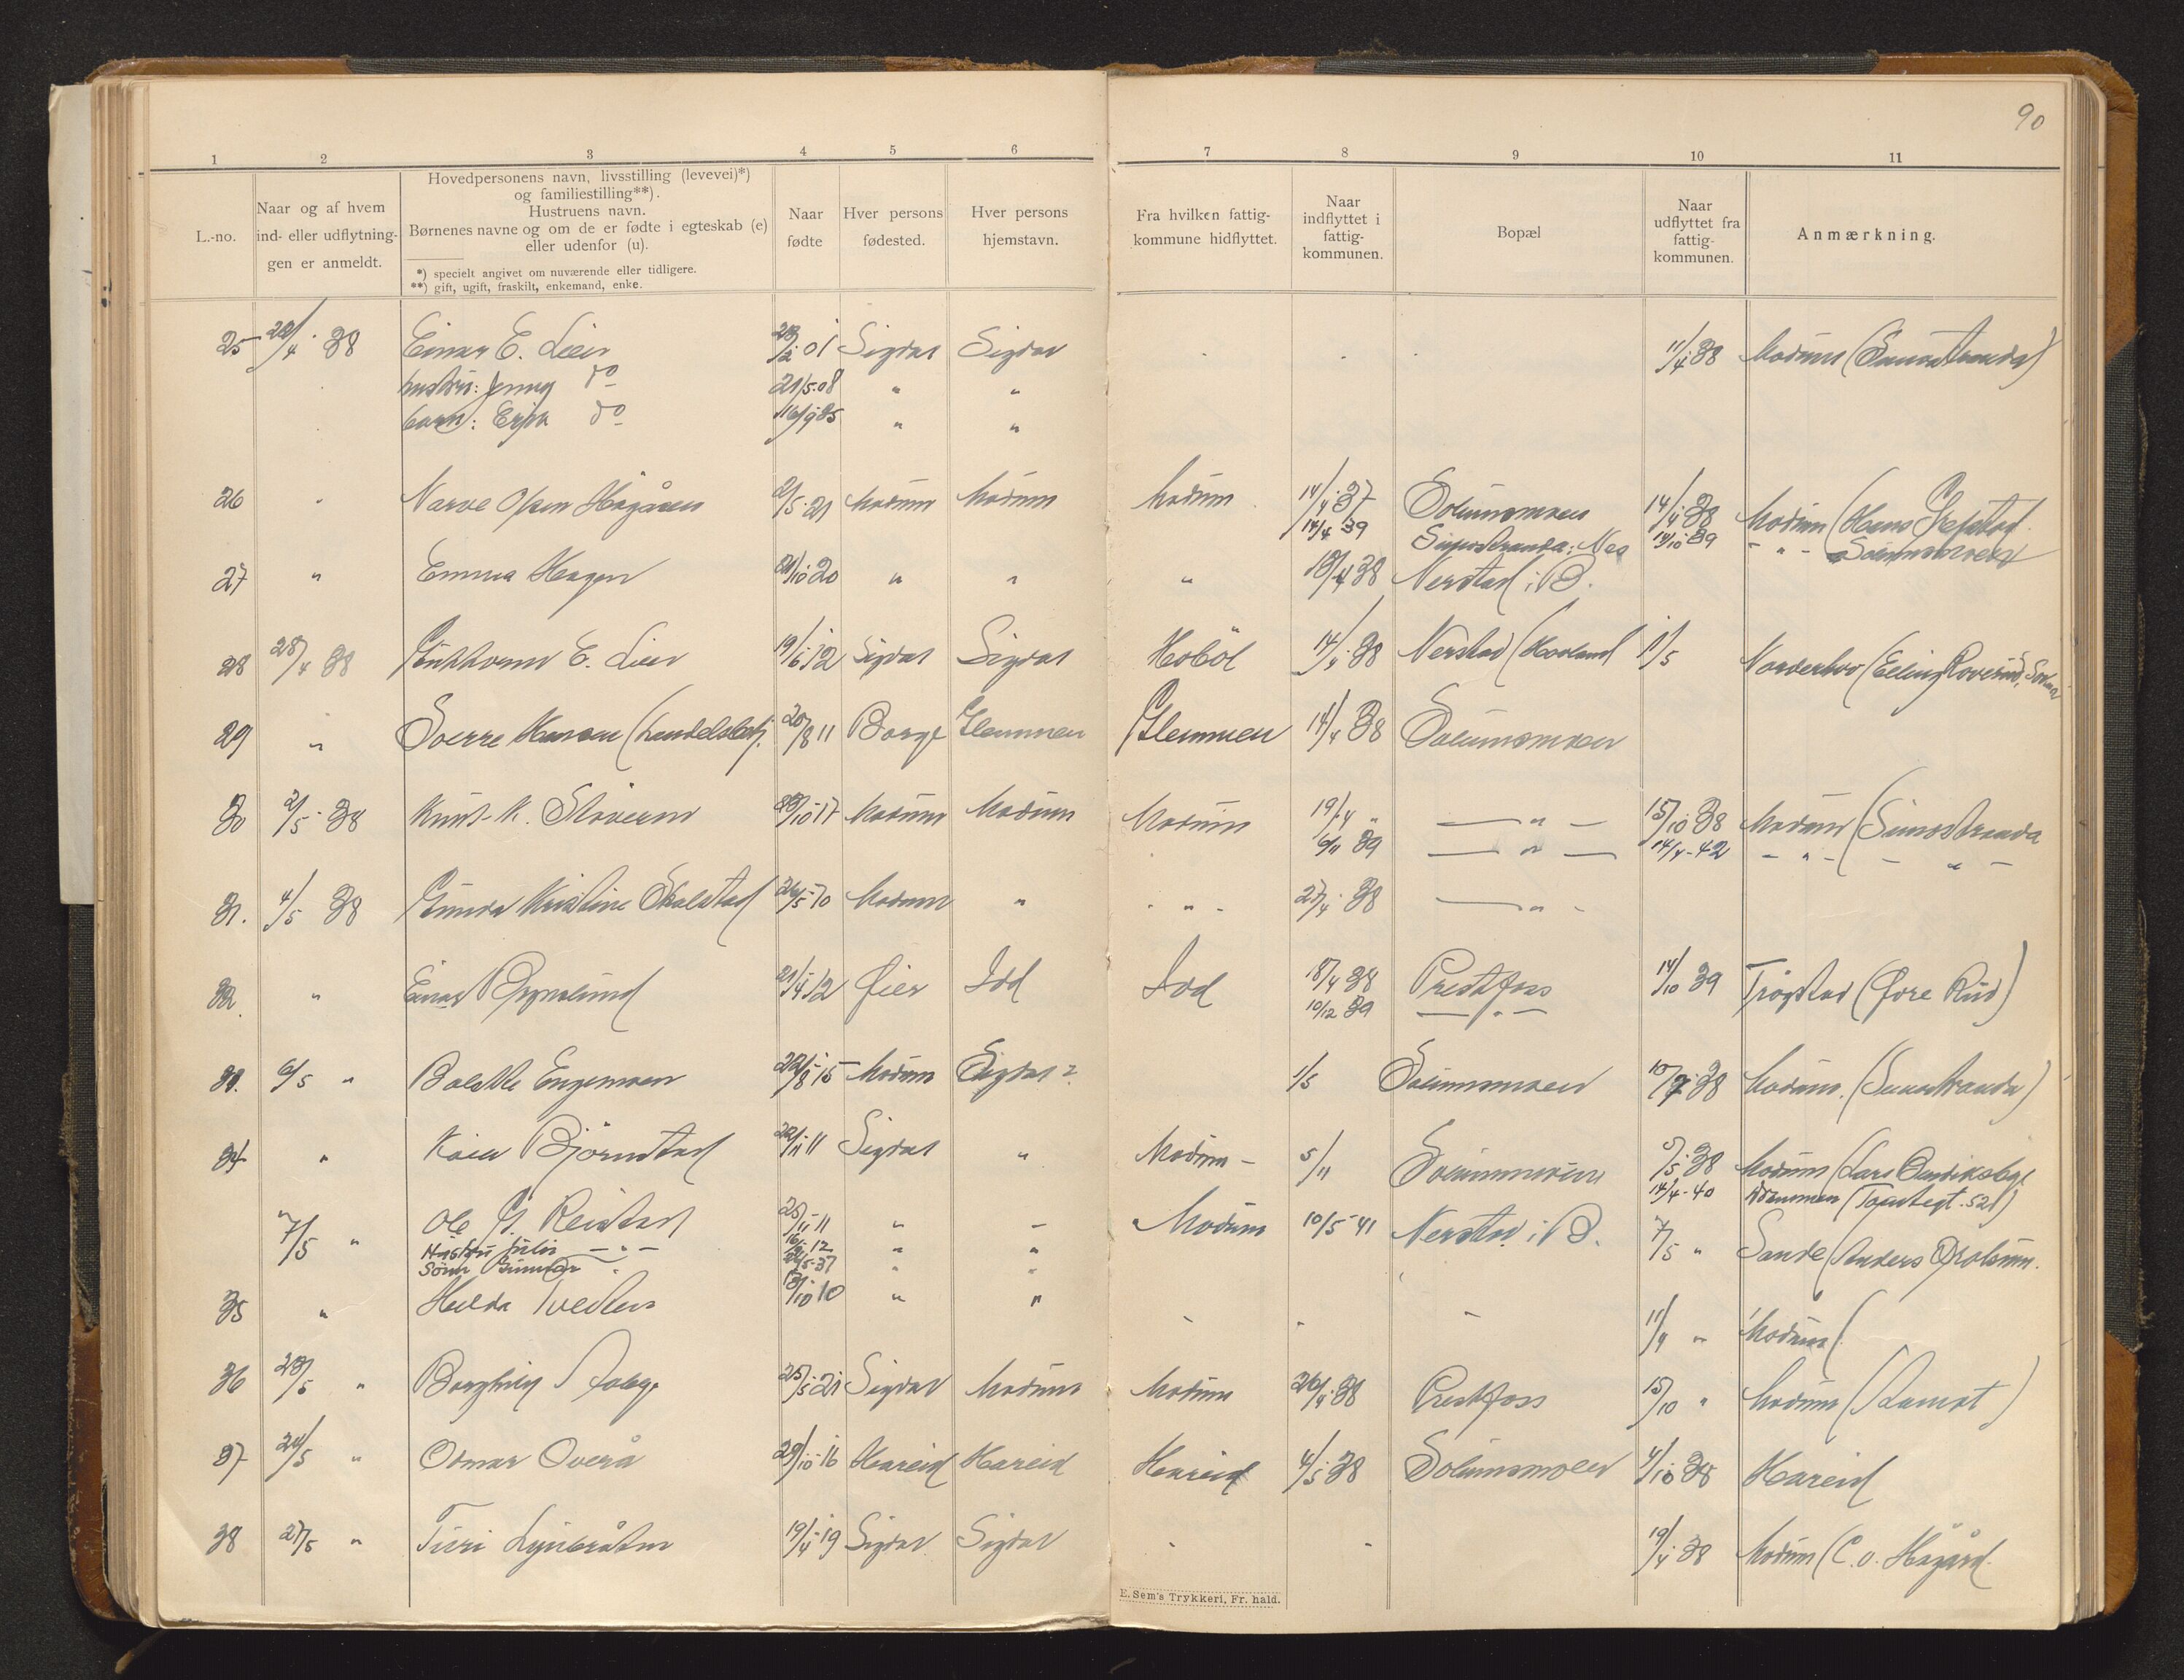 90
1 2 3 4 5 6 7 8 9 10 11
L.-no.
Naar og af hvem
ind- eller udflytning-
gen er anmeldt.
Hovedpersonens navn, livsstilling (levevei)*)
og familiestilling**).
Hustruens navn.
Børnenes navne og om de er fødte i egteskab (e)
eller udenfor (u).
*) specielt angivet om nuværende eller tidligere.
**) gift, ugift, fraskilt, enkemand, enke.
Naar
fødte
Hver persons
fødested.
Hver persons
hjemstavn.
Fra hvilken fattig-
kommune hidflyttet.
Naar
indflyttet i
fattig-
kommunen.
Bopæl
Naar
udflyttet fra
fattig-
kommunen.
Anmærkning.
25 22/4 38 Einar E. Lier 01 Sigdal Sigdal 11/4 38 Modum (Simostranda)
hustru: Jenny do 21/5-08 " "
barn: do 16/9 35 " "
26 " Narve Olsen Hagåsen 2/5-21 Modum Modum Modum 14/4 37 Solumsmoen 14/4 38 Modum (Hans
14/4 39 Simostranda: Nes 14/10 39 - " - Solumsmoen
27 " Emma Hagen 21/10 20 " " " 19/4 38 Nerstad i B.
28 28/4 38 E. Lier 19/6 12 Sigdal Sigdal Hobøl 14/4 38 Nerstad (Hovland 1/5 Norderhov (Elling
29 " Sverre Hansen (handelsbetj. 20/8 11 Borge Glemmen Glemmen 14/4 38 Solumsmoen
30 2/5-38 Knut K. Støveren 28/10 17 Modum Modum Modum 19/4 " — " — 15/10 38 Modum (Simostranda
6/11 39 — " — 14/4-42 - " - - " -
31. 4/5 38 Gunda Kristine Skalstad 26/5-70 Modum " - " - 27/4 38 — " -
32. " Einar 21/4 12 Øier Idd Idd 18/4 38 Prestfoss 14/10 39 Trøgstad (Øvre Rud)
10/12 39 — " —
33. 6/5 " Bolette Engemoen 22/8 15 Modum Sigdal? 1/5 Solumsmoen 10/7 38 Modum. (Simostranda)
34 " Kaia Bjørnstad 22/11 11 Sigdal " Modum - 5/11 Solumsmoen 5/5 38 Modum (Lars
14/4-40 Drammen (Tomtegt. 52)
7/5 " Ole G. Reistad 25/11 11 " - Modum 10/5-41 Nerstad i B. 7/5 " Sande (Anders
Hustru Julie - " - 12 " "
Sønn Gunnar " 37 " "
35 " Hilda Tveiten 13/10 10 " " - - - 11/4 " Modum (
36 23/5 " Borghild 25/5-21 Sigdal Modum Modum 20/4 38 Prestfoss 15/10 " Modum
37 24/5 " Odmar Overå 29/10-16 Hareid Hareid Hareid 4/5 38 Solumsmoen 4/10 38 Hareid
38 27/5 " Turi Lynbråten 19/4-19 Sigdal Sigdal - - 19/4 38 Modum (C. O. Hagård.
E. Sem's Trykkeri, Fr. hald.